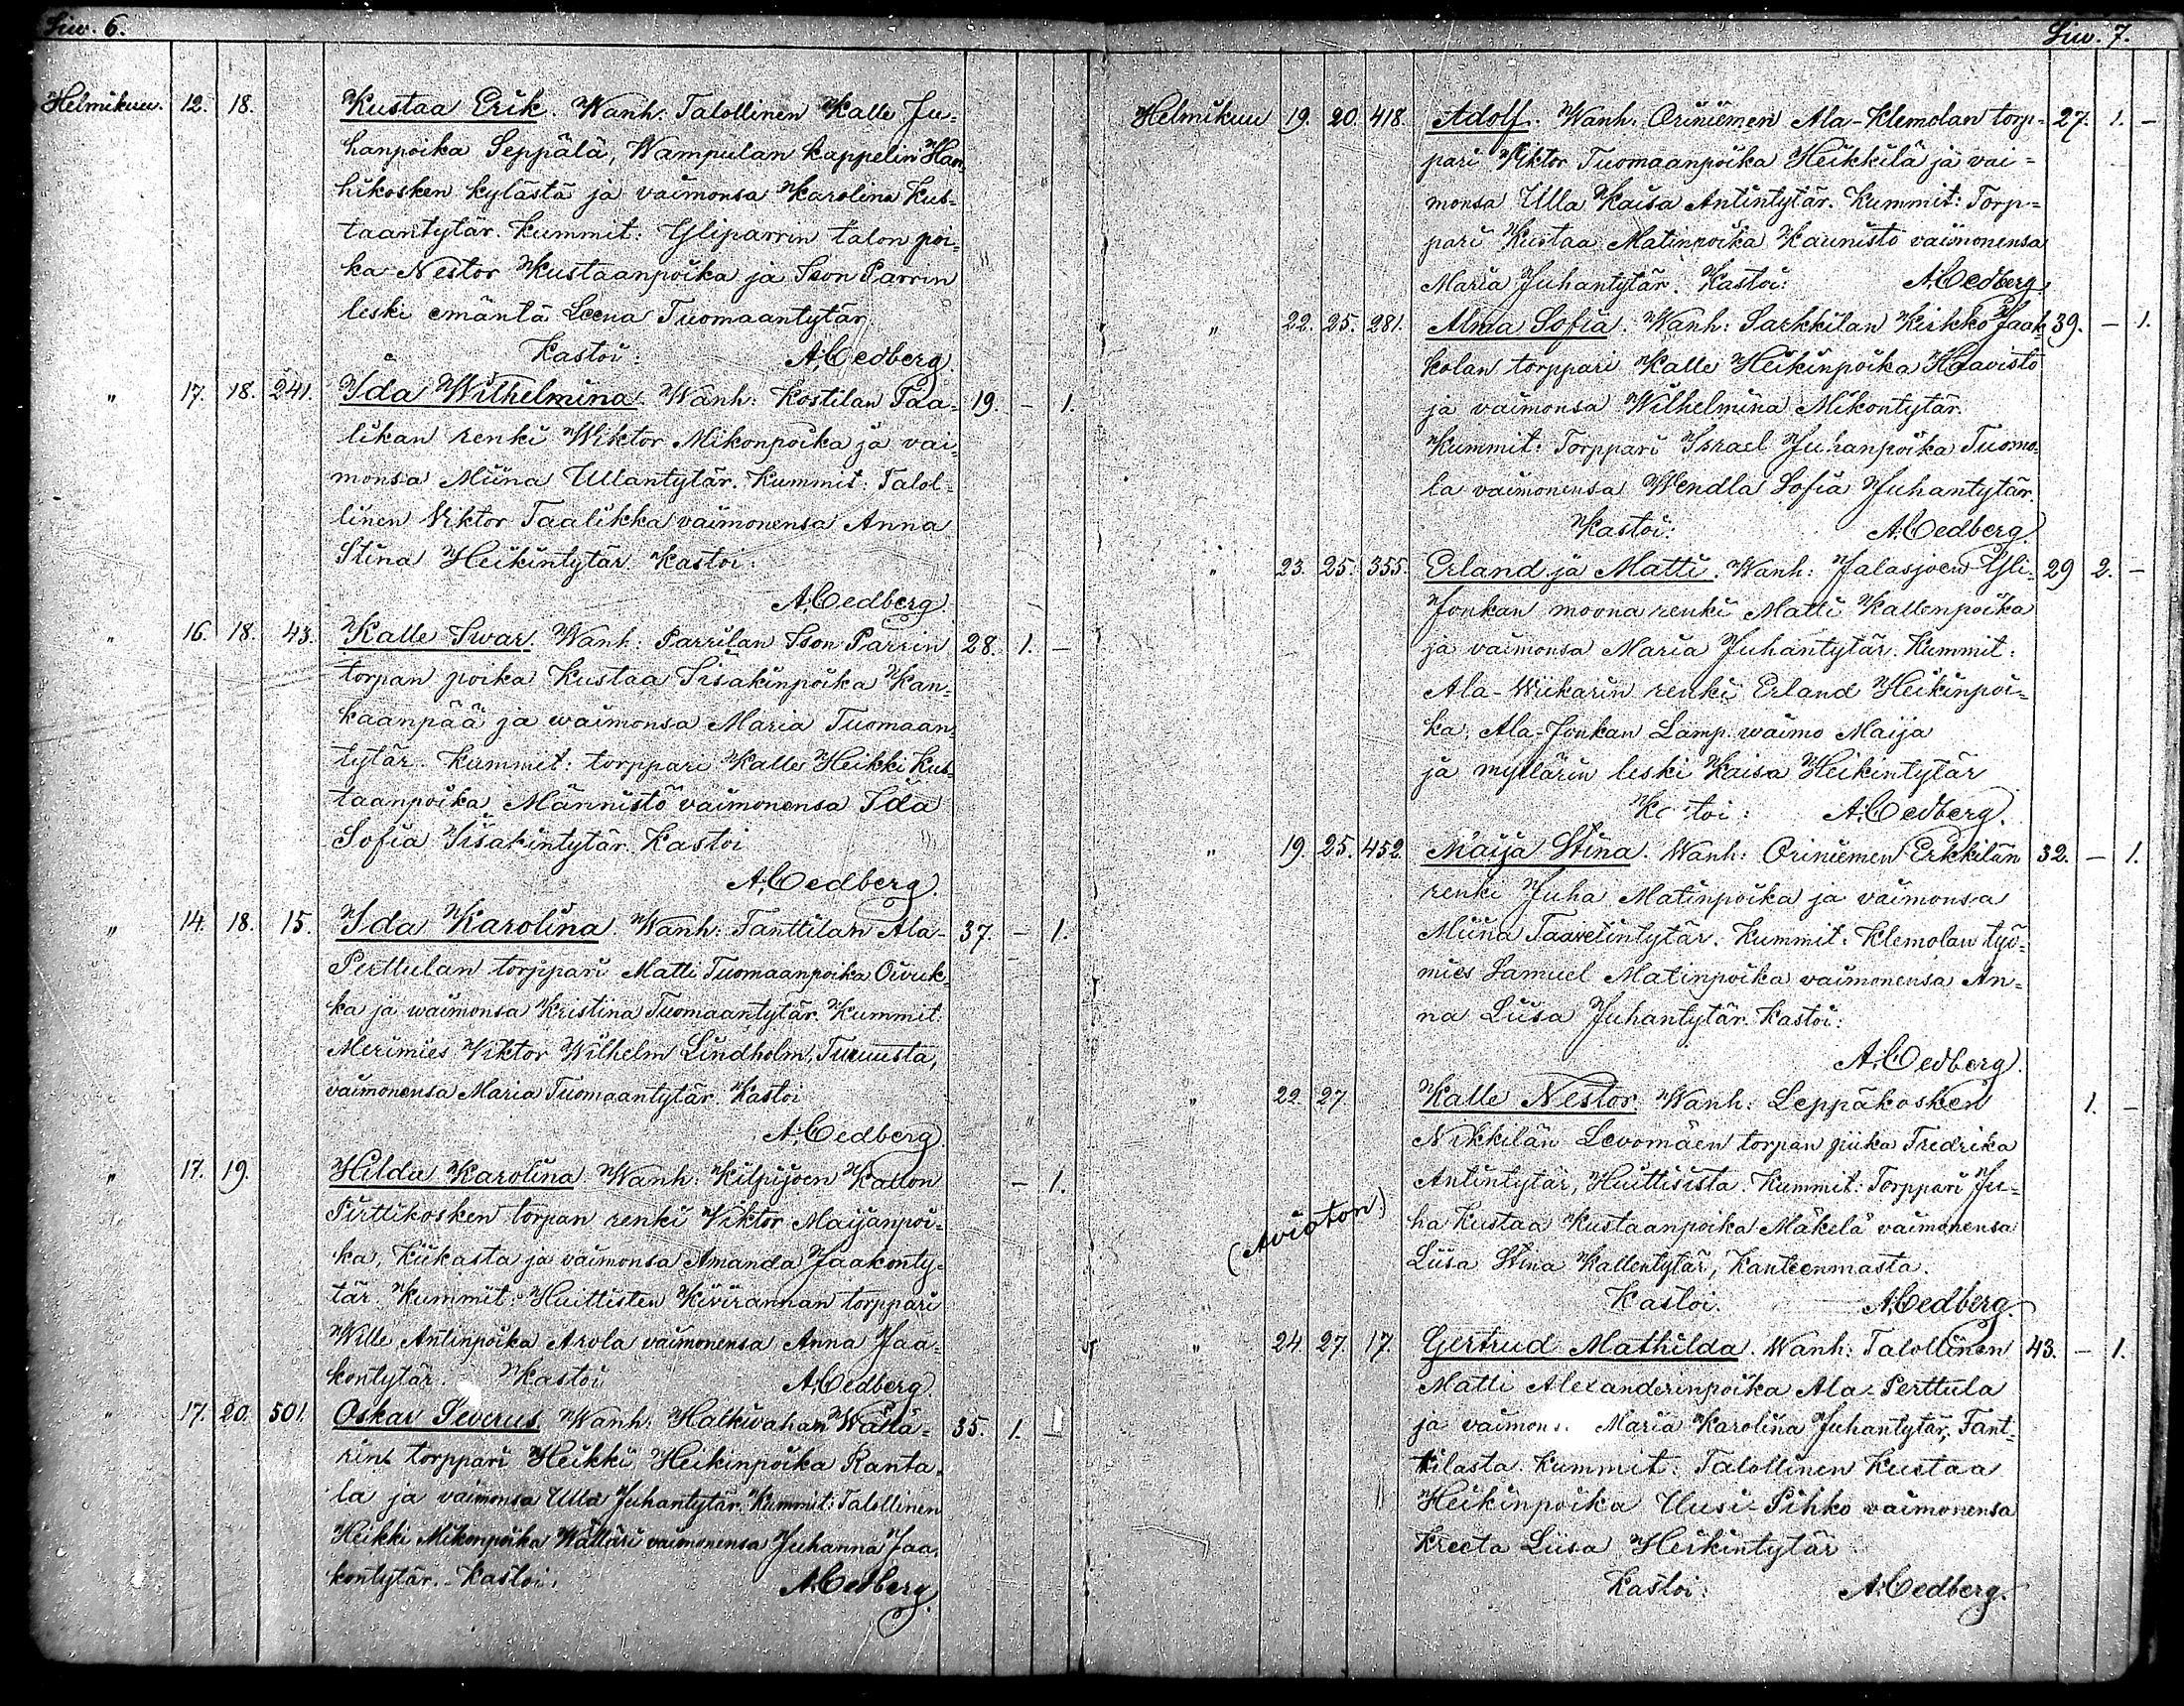 Siw. 6.
Helmikuu. 12. 18. Kustaa Erik. Wanh: Talollinen Kalle Ju=
hanpoika Seppälä, Wampulan kappelin Han=
hikosken kylästä ja vaimonsa Karolina Kus=
taantytär. Kummit: Yliparrin talon poi=
ka Nestor Kustaanpoika ja Ison Parrin
leski emäntä Leena Tuomaantytär
Kastoi: A. Cedberg.
" 17. 18. 241. Ida Wilhelmina. Wanh: Kostilan Taa= 19. - 1.
likan renki Wiktor Mikonpoika ja vai=
monsa Miina Ullantytär. Kummit: Talol=
linen Viktor Taalikka vaimonensa Anna
Stina Heikintytär. Kastoi:
A. Cedberg.
" 16. 18. 43. Kalle Iwar. Wanh: Parrilan Ison Parrin 28. 1. -
torpan poika Kustaa Iisakinpoika Kan=
kaanpää ja waimonsa Maria Tuomaan=
tytär. Kummit: torppari Kalle Heikki Kus=
taanpoika Männistö vaimonensa Ida
Sofia Iisakintytär. Kastoi
A. Cedberg.
" 14. 18. 15. Ida Karolina. Wanh: Tanttilan Ala- 37. - 1.
Perttulan torppari Matti Tuomaanpoika Oivuk=
ka ja waimonsa Kristina Tuomaantytär. Kummit:
Merimies Viktor Wilhelm Lindholm, Turuusta,
vaimonensa Maria Tuomaantytär. Kastoi
A. Cedberg.
" 17. 19. Hilda Karolina Wanh: Kilpijoen Kallon - 1.
Pirttikosken torpan renki Viktor Maijanpoi=
ka, Kiikasta ja vaimonsa Amanda Jaakonty=
tär. Kummit: Huittisten Kivirannan torppari
Wille Antinpoika Arola vaimonensa Anna Jaa=
kontytär. Kastoi A. Cedberg.
" 17. 20. 501. Oskar Severus. Wanh: Halkivahan Wällä= 35. 1. -
rin torppari Heikki Heikinpoika Ranta=
la ja vaimonsa Ulla Juhantytär. Kummit: Talollinen
Heikki Mikonpoika Wälläri vaimonensa Juhanna Jaa=
kontytär. Kastoi: A. Cedberg.
Siw. 7.
Helmikuu 19. 20. 418. Adolf. Wanh: Oriniemen Ala-Klemolan torp= 27. 1. -
pari Viktor Tuomaanpoika Heikkilä ja vai=
monsa Ulla Kaisa Antintytär. Kummit: Torp=
pari Kustaa Matinpoika Kaunisto vaimonensa
Maria Juhantytär. Kastoi: A. Cedberg.
" 22. 25. 281. Alma Sofia. Wanh: Sarkkilan Kirkko Jaak= 39. - 1.
kolan torppari Kalle Heikinpoika Haavisto
ja vaimonsa Wilhelmina Mikontytär.
Kummit: Torppari Israel Juhanpoika Tuomo=
la vaimonensa Wendla Sofia Juhantytär.
Kastoi: A. Cedberg.
" 23. 25. 355. Erland ja Matti. Wanh: Jalasjoen Yli= 29 2. -
Jonkan moona renki Matti Kallenpoika
ja vaimonsa Maria Juhantytär. Kummit:
Ala-Wiikarin renki Erland Heikinpoi=
ka, Ala-Jonkan Lamp. waimo Maija
ja myllärin leski Kaisa Heikintytär
Ka toi: A. Cedberg.
" 19. 25. 452. Maija Stina. Wanh: Oriniemen Erkkilän 32. - 1.
renki Juha Matinpoika ja vaimonsa
Miina Taavetintytär. Kummit: Klemolan työ=
mies Samuel Matinpoika vaimonensa An=
na Liisa Juhantytär. Kastoi:
A. Cedberg.
" 22. 27 Kalle Nestor. Wanh: Leppäkosken 1. -
Nikkilän Levomäen torpan piika Fredrika
Antintytär, Huittisista. Kummit: Torppari Ju=
(Avioton) ha Kustaa Kustaanpoika Mäkelä vaimonensa
Liisa Stina Kallentytär, Kanteenmasta.
Kastoi. A. Cedberg.
" 24. 27. 17. Gertrud Mathilda. Wanh: Talollinen 43. - 1.
Matti Alexanderinpoika Ala-Perttula
ja vaimons. Maria Karolina Juhantytär, Tant=
tilasta. Kummit: Talollinen Kustaa
Heikinpoika Uusi-Pihko vaimonensa
Kreeta Liisa Heikintytär
Kastoi: A. Cedberg.